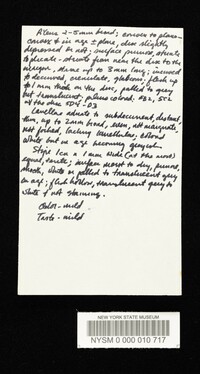 Pileus 2-5mm broad; convex to plano-
convex in age ± plane, disc slightly
depressed or not; surface moist, striate
to plicate-striate from near the disc to the
margin, striae up to 3mm long; incurved
to decurved, crenulate, glabrous. flesh up
to 1mm thick on the disc, pallid to grey
but translucent
at the disc 5D4-D3
Lamellae adnate to subdecurrent, distant,
thin, up to 2mm broad, even, not marginate
not forked, lacking lamellulae; colored
white but in age becoming greyish.
Stipe 1cm x 1mm wide
equal, terete; surface moist to dry,
smooth, white or pallid to translucent grey
in age; flesh hollow, translucent grey to
white & not staining.
Odor - mild
Taste - mild
NEW YORK STATE MUSEUM
NYSM 0 000 010 717